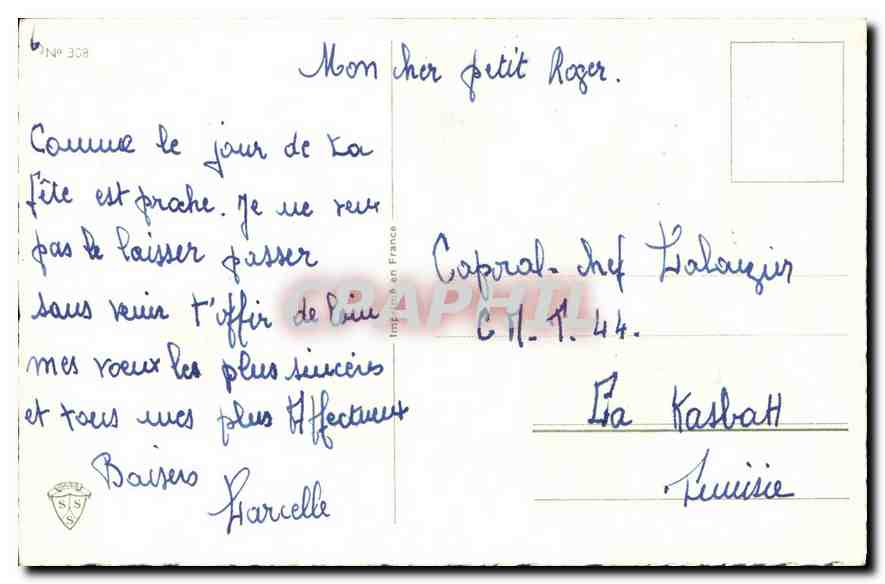 Nº 308
Mon cher petit Roger.
Comme le jour de ta
fête est proche. Je ne veux
pas le laisser passer
sans venir t'offir de loin
mes voeux les plus sincères
et tous mes plus Affectueux
Baisers
Marcelle
Imprimé en France
Caporal-chef
C M. T. 44.
La KasbaH
Tunisie
CPRAPHIL
SSS